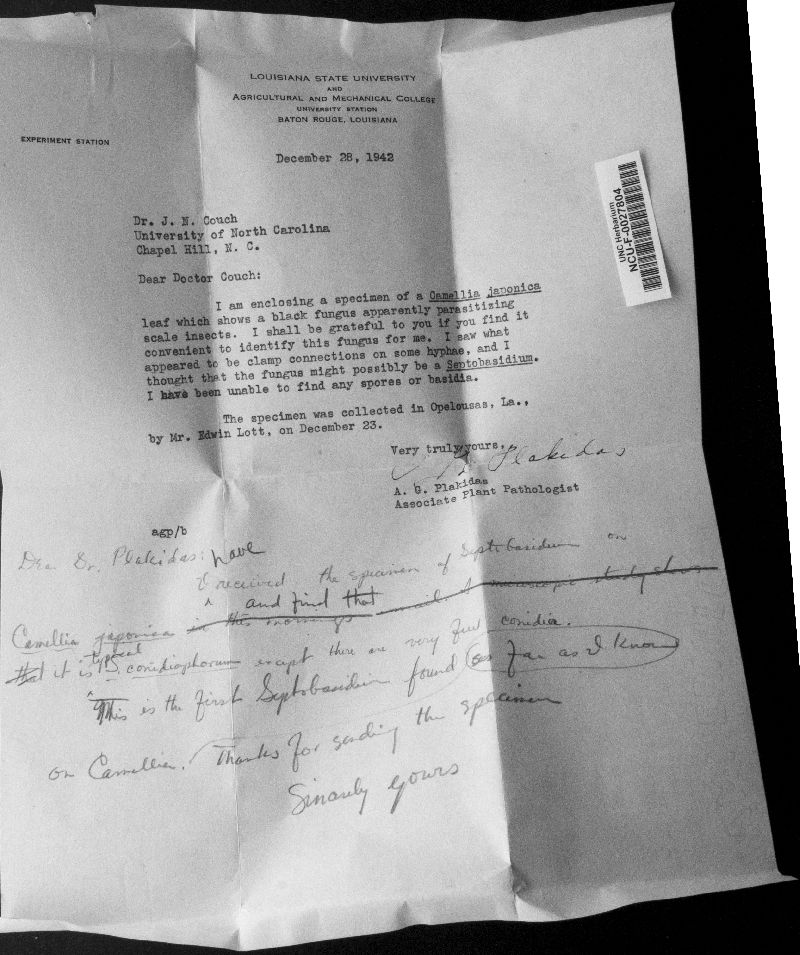 LOUISIANA STATE UNIVERSITY
AND
AGRICULTURAL AND MECHANICAL COLLEGE
UNIVERSITY STATION
BATON ROUGE, LOUISIANA
EXPERIMENT STATION
December 28, 1942
UNC Herbarium
NCU-F-0027804
Dr. J. N. Couch
University of North Carolina
Chapel Hill, N. C.
Dear Doctor Couch:
I am enclosing a specimen of a Camellia japonica
leaf which shows a black fungus apparently parasitizing
scale insects. I shall be grateful to you if you find it
convenient to identify this fungus for me. I saw what
appeared to be clamp connections on some hyphae, and I
thought that the fungus might possibly be a Septobasidium.
I have been unable to find any spores or basidia.
The specimen was collected in Opelousas, La.,
by Mr. Edwin Lott, on December 23.
Very truly yours,
A G Plakidas
A. G. Plakidas
Associate Plant Pathologist
agp/b
Dear Dr. Plakidas:
have
I received the specimen of Septobasidium on
and find that
Camellia japonica in this mornings mail. A microscopic study shows
typical
that it is S. conidiophorum except there are very few conidia.
This is the first Septobasidium found as far as I know
on Camellia. Thanks for sending the specimen
Sincerely yours